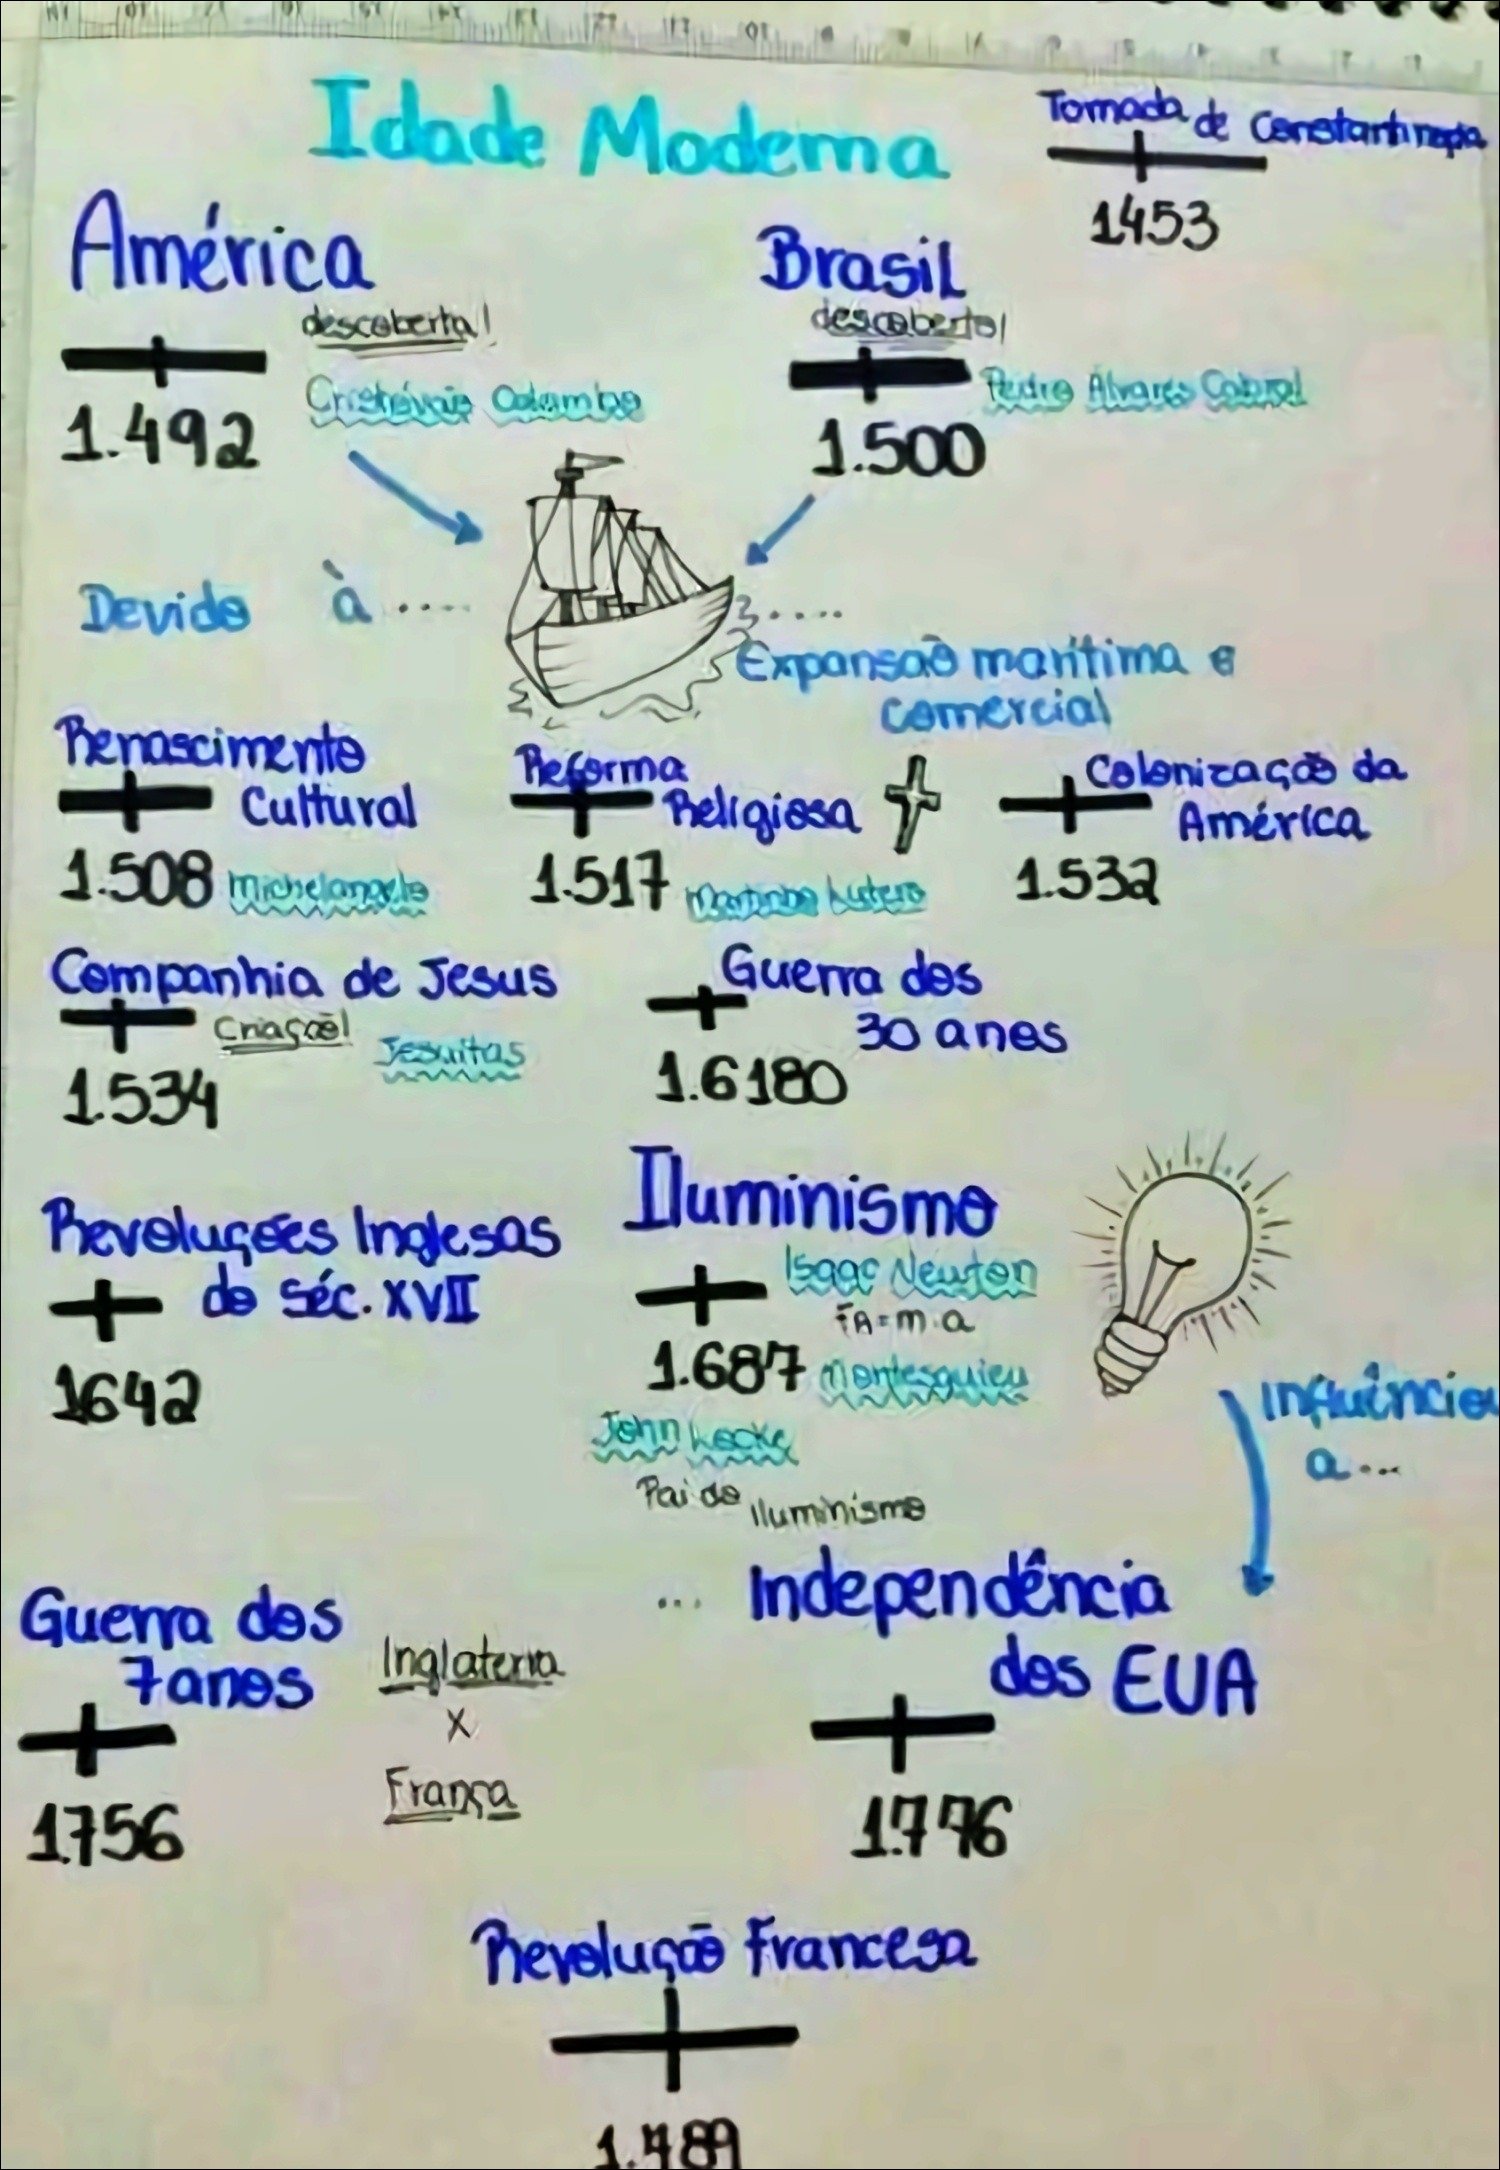 Idade Moderna
Tomada de Constantinopla
1453
América
descoberta!
Cristóvão Colombo
1.492
Brasil
descoberto!
Pedro Álvares Cabral
1.500
Devido à ....
....
Expansão marítima e
comercial
Renascimento
Cultural
1.508 Michelangelo
Reforma
Religiosa
1.517 Martinho Lutero
Colonização da
América
1.532
Companhia de Jesus
Criação!
Jesuitas
1.534
Guerra dos
30 anos
1.6180
Revoluções Inglesas
do Séc. XVII
1642
Iluminismo
Isaac Newton
FA = m.a
1.687 Montesquieu
John Locke
Pai do Iluminismo
Influência
a ...
Guerra dos
7 anos
Inglaterra
X
França
1.756
... Independência
dos EUA
1.776
Revolução Francesa
1.789